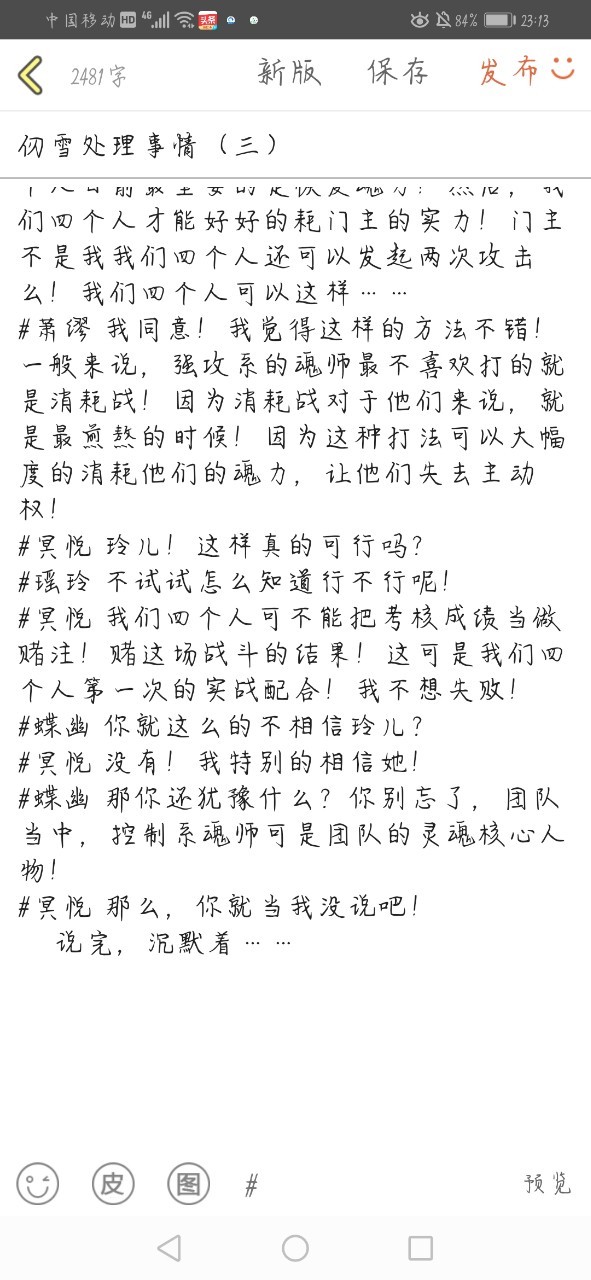 中国移动 HD 4G 头条 84% 23:13
2481字 新版 保存 发布
仞雪处理事情（三）
们四个人才能好好的耗门主的实力！门主
不是我我们四个人还可以发起两次攻击
么！我们四个人可以这样……
#萧缪 我同意！我觉得这样的方法不错！
一般来说，强攻系的魂师最不喜欢打的就
是消耗战！因为消耗战对于他们来说，就
是最煎熬的时候！因为这种打法可以大幅
度的消耗他们的魂力，让他们失去主动
权！
#冥悦 玲儿！这样真的可行吗？
#瑶玲 不试试怎么知道行不行呢！
#冥悦 我们四个人可不能把考核成绩当做
赌注！赌这场战斗的结果！这可是我们四
个人第一次的实战配合！我不想失败！
#蝶幽 你就这么的不相信玲儿？
#冥悦 没有！我特别的相信她！
#蝶幽 那你还犹豫什么？你别忘了，团队
当中，控制系魂师可是团队的灵魂核心人
物！
#冥悦 那么，你就当我没说吧！
说完，沉默着……
皮 图 # 预览